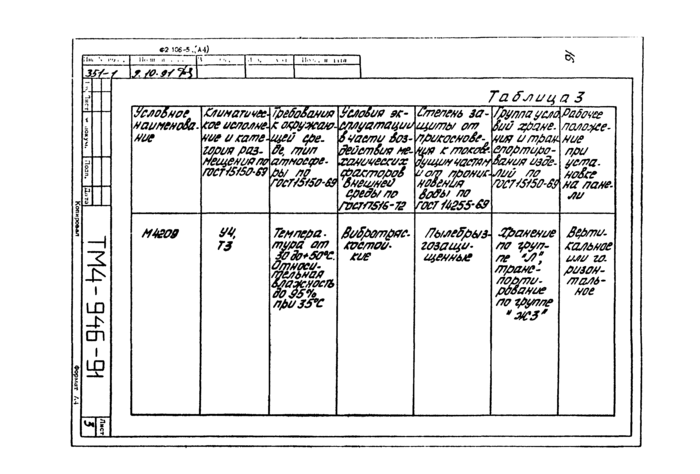 Ф2 106-5 (А4)
16
351-1
9.10.91
Таблица 3
Условное
наименова-
ние
Климатичес-
кое исполне-
ние и кате-
гория раз-
мещения по
ГОСТ15150-69
Требования
к окружаю-
щей сре-
де, тип
атмосфе-
ры по
ГОСТ15150-69
Условия эк-
сплуатации
в части воз-
действия ме-
ханических
факторов
внешней
среды по
ГОСТ17516-72
Степень за-
щиты от
прикоснове-
ния к токове-
дущим частям
и от проник-
новения
воды по
ГОСТ 14255-69
Группа усло-
вий хране-
ния и тран-
спортиро-
вания изде-
лий по
ГОСТ15150-69
Рабочее
положе-
ние
при
уста-
новке
на пане-
ли
М4209
У4,
Т3
Темпера-
тура от
30 до+50°С.
Относи-
тельная
влажность
до 95%
при 35°С
Вибротряс-
костой-
кие
Пылебрыз-
гозащи-
щенные
Хранение
по груп-
пе "Л",
транс-
порти-
рование
по группе
"Ж3"
Верти-
кальное
или го-
ризон-
таль-
ное
Копировал
ТМ4-946-91
Формат А4
Лист
3